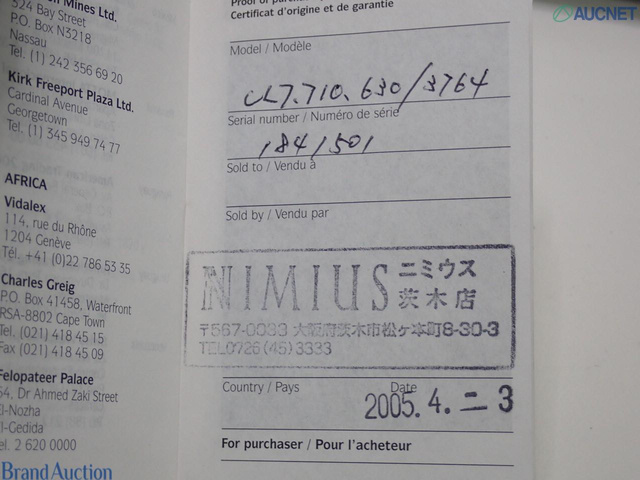 Mines Ltd.
324 Bay Street
P.O. Box N3218
Nassau
Tel. (1) 242 356 69 20
Kirk Freeport Plaza Ltd.
Cardinal Avenue
Georgetown
Tel. (1) 345 949 74 77
AFRICA
Vidalex
114, rue du Rhône
1204 Genève
Tél. +41 (0)22 786 53 35
Charles Greig
P.O. Box 41458, Waterfront
RSA-8802 Cape Town
Tel. (021) 418 45 15
Fax (021) 418 45 09
Felopateer Palace
54, Dr Ahmed Zaki Street
El-Nozha
El-Gedida
Tel. 2 620 0000
Brand Auction
AUCNET
Proof of
Certificat d'origine et de garantie
Model / Modèle
CL7.710.630/3764
Serial number / Numéro de série
184/501
Sold to / Vendu à
Sold by / Vendu par
NIMIUS ニミウス
茨木店
〒567-0033 大阪府茨木市松ケ本町8-30-3
TEL0726(45)3333
Country / Pays
Date
2005. 4. 二 3
For purchaser / Pour l'acheteur